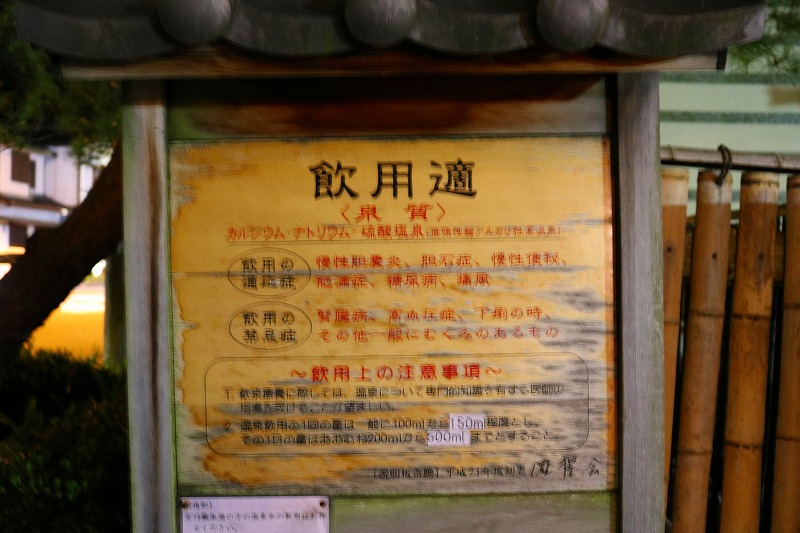 飲用適
〈泉質〉
カルシウム・ナトリウム-硫酸塩泉(低張性弱アルカリ性高温泉)
飲用の
適応症
慢性胆嚢炎、胆石症、慢性便秘、
肥満症、糖尿病、痛風
飲用の
禁忌症
腎臓病、高血圧症、下痢の時、
その他一般にむくみのあるもの
〜飲用上の注意事項〜
1. 飲泉療養に際しては、温泉について専門的知識を有する医師の
指導を受けることが望ましい。
2. 温泉飲用の1回の量は一般に100mlから150ml程度とし、
その1日の量はおおむね200mlから500mlまでとすること。
平成21年